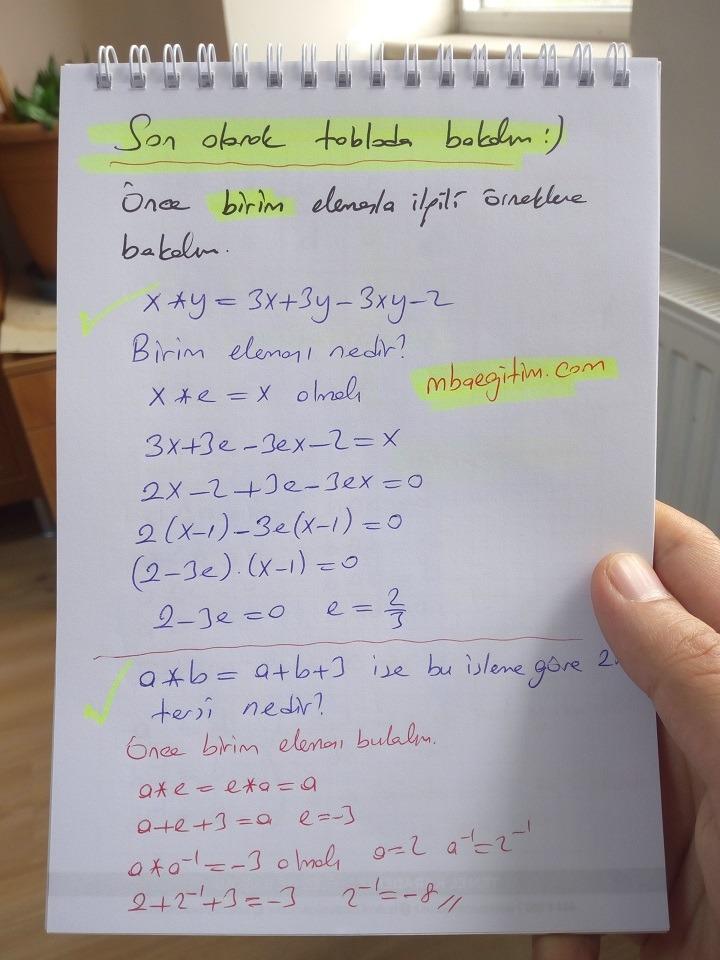 Son olarak tabloda bakalım :)
Önce birim elemanla ilgili örneklere
bakalım.
x * y = 3x+3y-3xy-2
Birim elemanı nedir?
x * e = x olmalı
mbaegitim.com
3x+3e-3ex-2=x
2x-2+3e-3ex=0
2(x-1)-3e(x-1)=0
(2-3e).(x-1)=0
2-3e=0 e = 2/3
a*b = a+b+3 ise bu işleme göre 2.
tersi nedir?
Önce birim elemanı bulalım.
a*e = e*a = a
a+e+3=a e=-3
a*a⁻¹=-3 olmalı a=2 a⁻¹=2⁻¹
2+2⁻¹+3=-3 2⁻¹=-8//